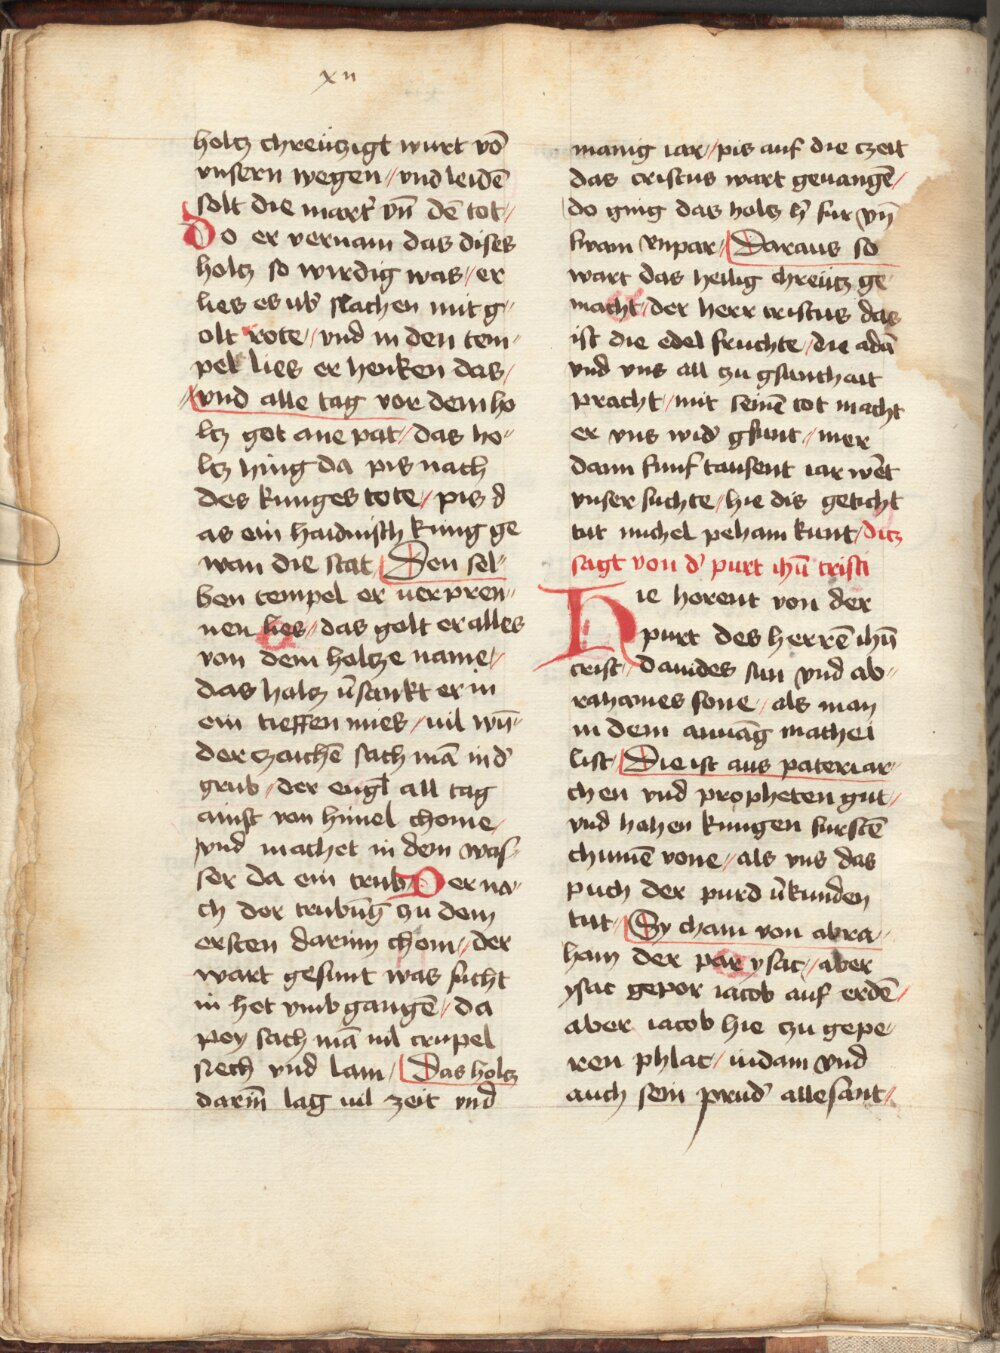 xii
holtz chreützigt wurt vō
vnsern wegen // vnd leidē
solt die mart' vn̄ dē tot //
Do er vernam das dises
holtz so wirdig was // er
lies es üb' slachen mit g//
olt rote // vnd in den tem//
pel lies er henken das /
// vnd alle tag vor dem ho
ltz got ane pat / das ho//
ltz hing da pis nach
des kunges tote // pis d
as ein haidnisch kung ge
wan die stat / Den sel//
ben tempel er uerpren//
nen lies // das golt er alles
von dem holtze name //
das holtz v̄sankt er in
ein tieffen mies / uil wū//
der zaichē sach mā in d'
grub / der engl all tag
ainst von himel chome /
vnd machet in dem was//
ser da ein trub / Der na//
ch der trubūg zu dem
ersten darinn chom // der
wart gesunt was sucht
in het vmb gangē / da
pey sach mā uil crupel
siech vnd lam / Das holtz
darīn lag uil zeit vnd
manig iar // pis auf die czeit
das cristus wart geuangē /
do ging das holtz h' fur vn̄
swam enpar / Daraus so
wart das heilig chreütz ge
macht / der herr cristus das
ist die edel fruchte / die adā
vnd vns all zu gsunthait
pracht / mit seinē tot macht
er vns wid' gsunt // mer
dann funf tausent iar wēt
vnser suchte / hie dis geticht
tut michel peham kunt / ditz
sagt von d' purt ihū cristi
Hie horent von der
purt des herrē ihū
crist / dauides sun vnd ab//
rahames sone / als man
in dem anuāg mathei
list / Die ist aus pateriar//
chen vnd propheten gut /
vnd hohen kungen furstē
chumē vone // als vns das
puch der purd v̄kunden
tut / Sy cham von abra//
ham der par ysac // aber
ysac gepor iacob auf erdē /
aber iacob hie zu gepe//
ren phlac / iudam vnd
auch sein prud' allesant //